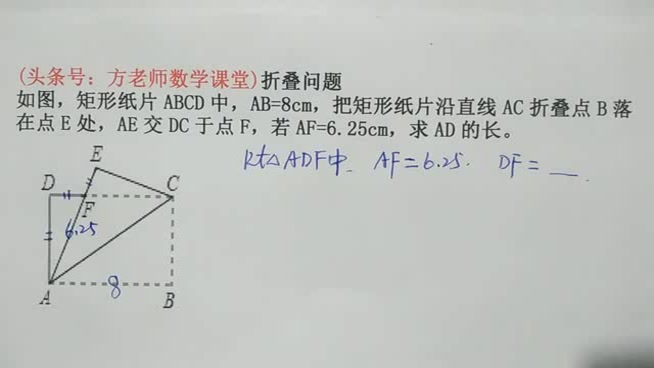 (头条号：方老师数学课堂)折叠问题
如图，矩形纸片 ABCD 中，AB=8cm，把矩形纸片沿直线 AC 折叠点 B 落
在点 E 处，AE 交 DC 于点 F，若 AF=6.25cm，求 AD 的长。
Rt△ADF中 AF=6.25. DF=__.
E
D
C
F
6.25
8
A
B